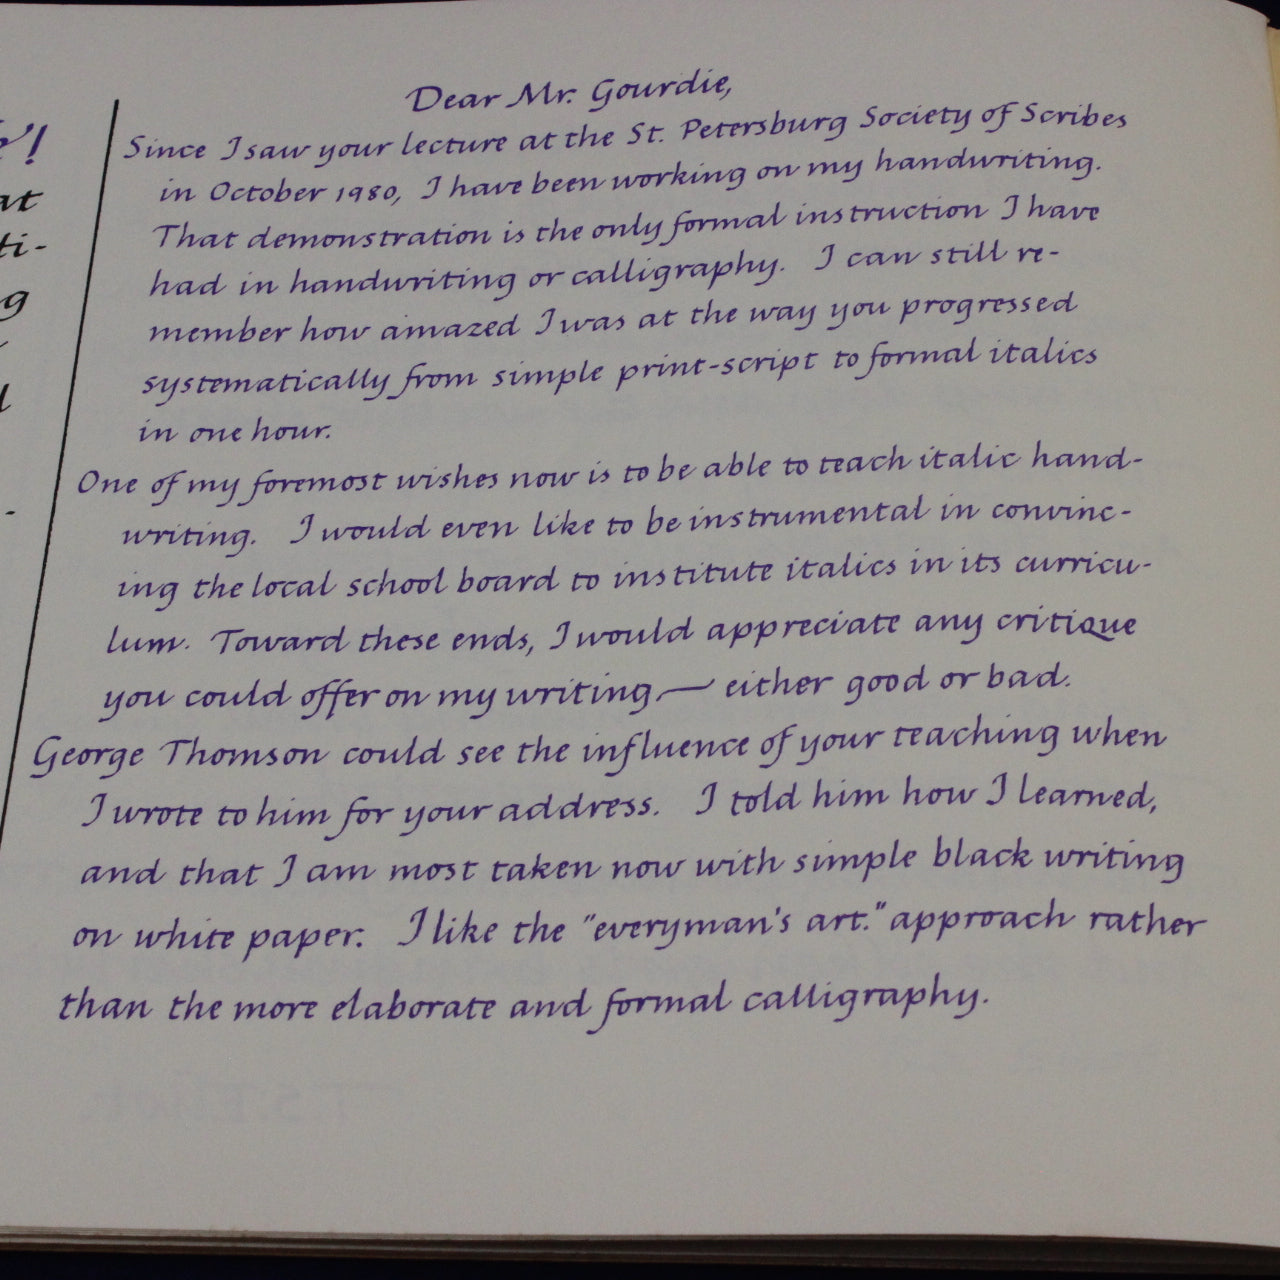 Dear Mr. Gourdie,
Since I saw your lecture at the St. Petersburg Society of Scribes
in October 1980, I have been working on my handwriting.
That demonstration is the only formal instruction I have
had in handwriting or calligraphy. I can still re-
member how amazed I was at the way you progressed
systematically from simple print-script to formal italics
in one hour.
One of my foremost wishes now is to be able to teach italic hand-
writing. I would even like to be instrumental in convinc-
ing the local school board to institute italics in its curricu-
lum. Toward these ends, I would appreciate any critique
you could offer on my writing — either good or bad.
George Thomson could see the influence of your teaching when
I wrote to him for your address. I told him how I learned,
and that I am most taken now with simple black writing
on white paper. I like the "everyman's art." approach rather
than the more elaborate and formal calligraphy.
at
ti-
g